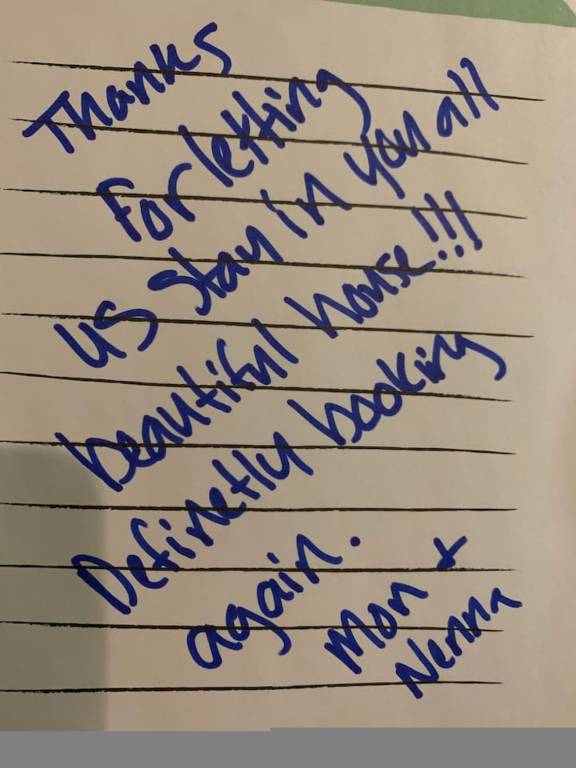 Thanks
For letting
us stay in you all
beautiful house!!!
Definetly booking
again.
Mon +
Nenna